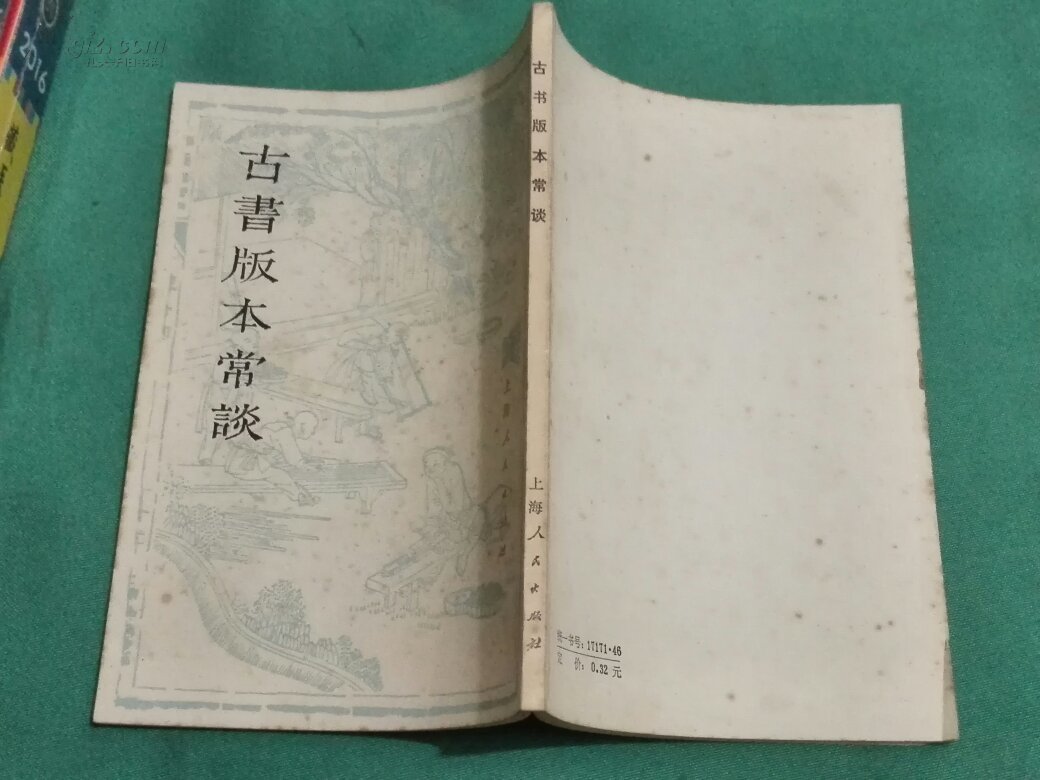 古書版本常談
古书版本常谈
上海人民出版社
统一书号：17171·46
定 价：0.32 元
2016